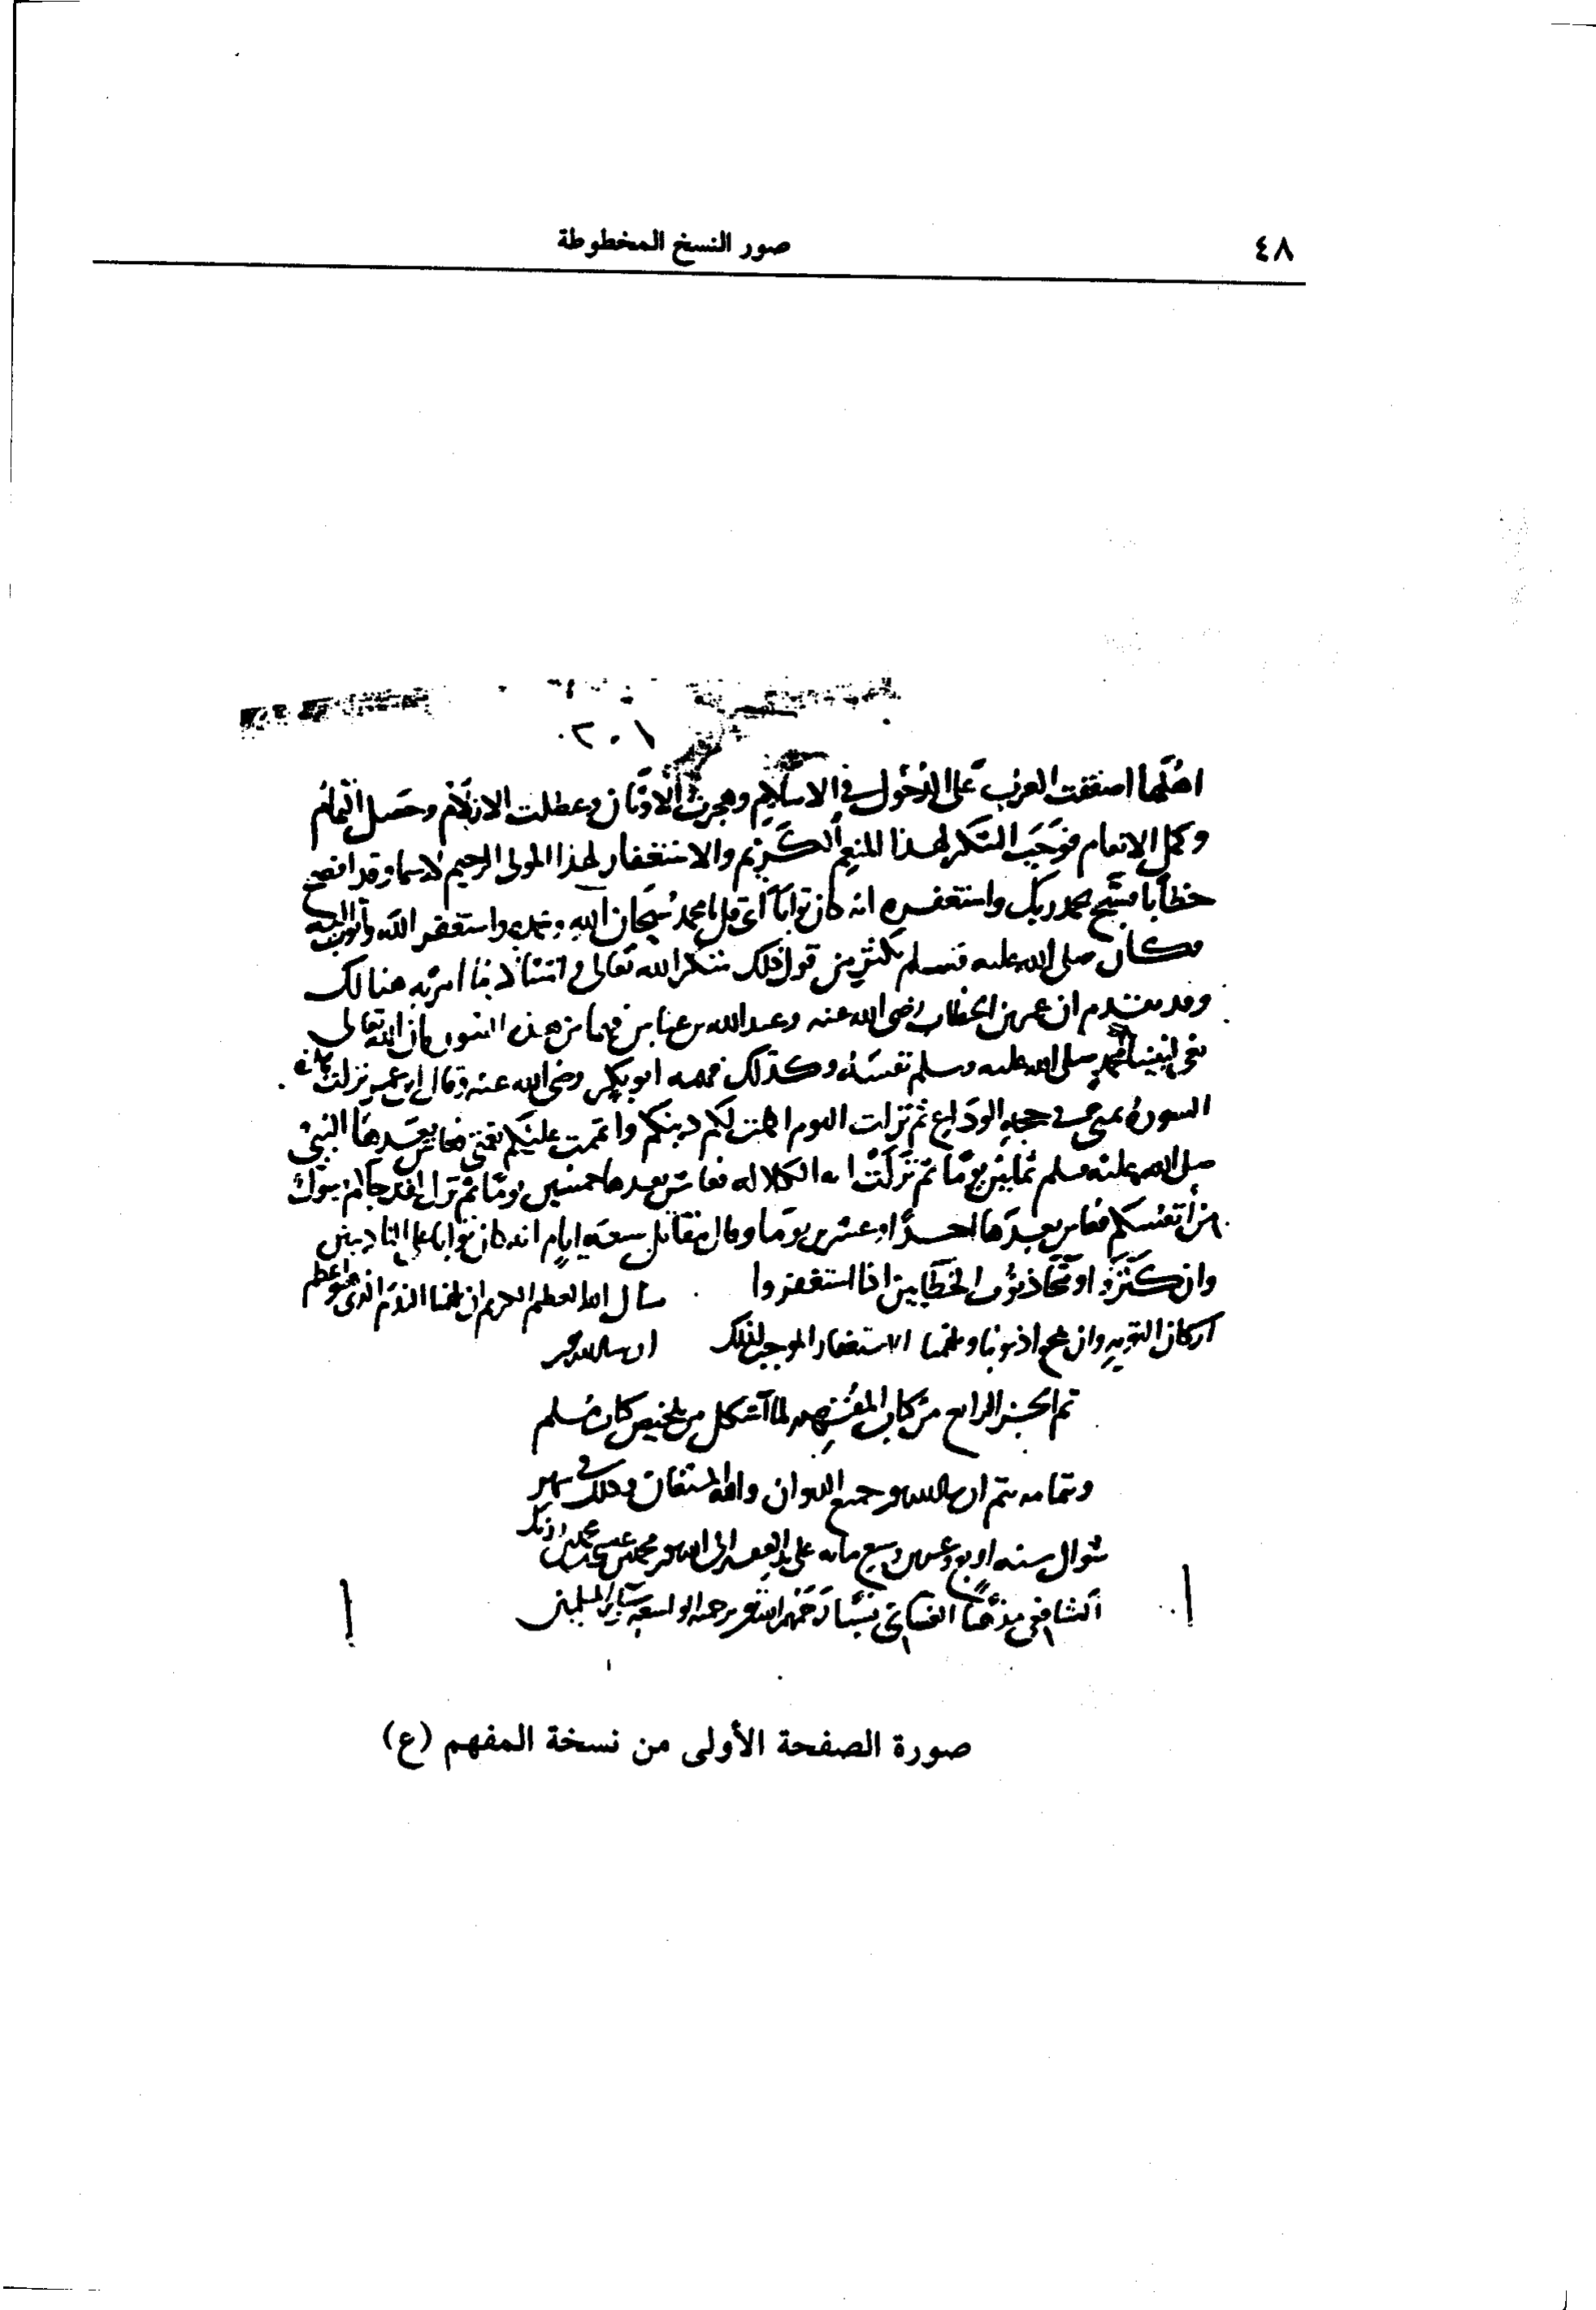 ٤٨
صور النسخ المخطوطة
٢٠١
اهلها اصفقت العرب على الدخول في الاسلام وهجرت الاوثان وعطلت الازلام وحصل التمام
وكمل الانعام فوجب الشكر لهذا المنعم الكريم والاستغفار لهذا المولى الرحيم لا سيما وقد افصح
خطابا فسبح بحمد ربك واستغفره انه كان توابا اى قل يا محمد سبحان الله وبحمده واستغفر الله واتوب اليه
فكان صلى الله عليه وسلم يكثر من قول ذلك شكرا لله تعالى وامتثالا لما امر به هنالك
وقد تقدم ان عمر بن الخطاب رضى الله عنه وعبد الله بن عباس فهما من هذه السورة ان الله تعالى
نعى لنبينا محمد صلى الله عليه وسلم نفسه وكذلك فهمه ابو بكر رضى الله عنه وقال ابن عمر نزلت هذه
السورة بمنى في حجة الوداع ثم نزلت اليوم اكملت لكم دينكم واتممت عليكم نعمتى فعاش بعدها النبى
صلى الله عليه وسلم ثمانين يوما ثم نزلت اية الكلالة فعاش بعدها خمسين يوما ثم نزل لقد جاكم رسول
من انفسكم فعاش بعدها احدا وعشرين يوما وقال مقاتل سبعة ايام انه كان توابا على التائبين
وان كثروا ومحاء ذنوب الخطايين اذا استغفروا نسال الله العظيم الكريم ان يلهمنا الندم الذى هو اعظم
اركان التوبة وان يمحوا ذنوبنا ويلهمنا الاستغفار الموجب لذلك ان شا الله
تم الجز الرابع من كتاب المفهم لما اشكل من تلخيص كتاب مسلم
وبتمامه يتم ان شا الله جميع الديوان والله المستعان وذلك في شهر
شوال سنه اربع وعشرين وسبع مايه على يد الفقير الى الله محمد بن عيسى بن محمد
الشافعى مذهبا نسبا رحمهم الله برحمته الواسعة وساير المسلمين
صورة الصفحة الأولى من نسخة المفهم (ع)